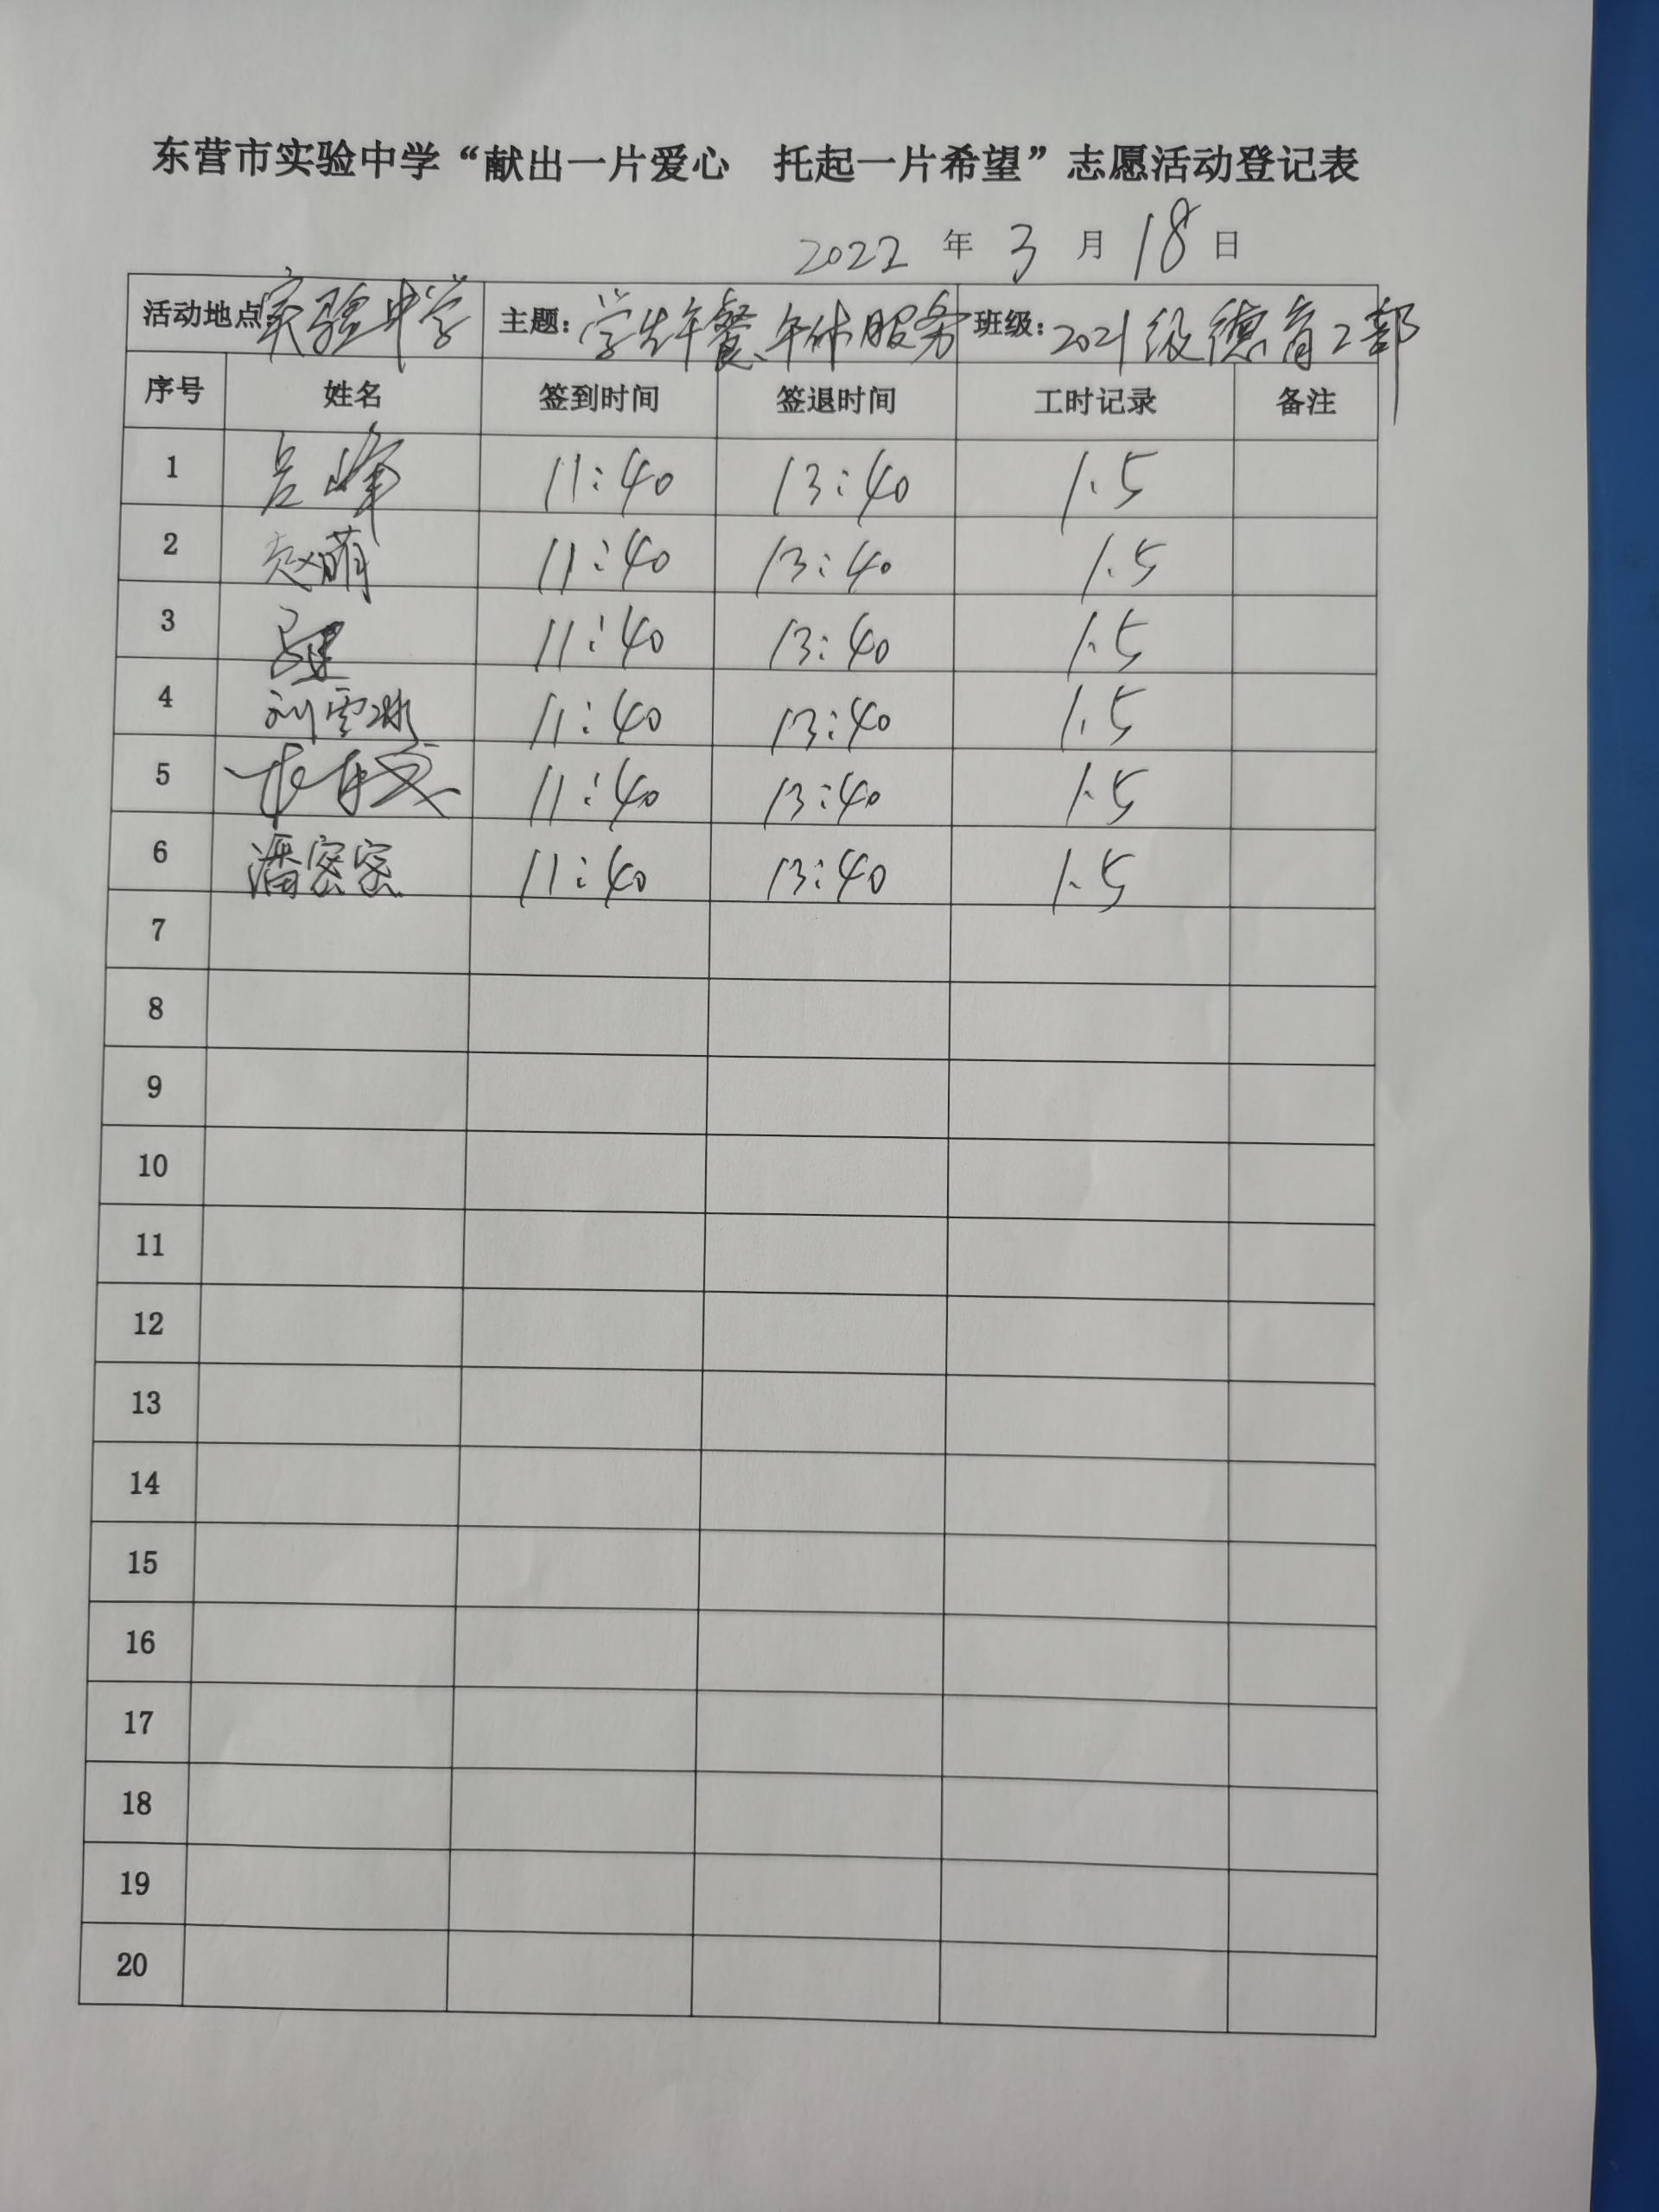 东营市实验中学“献出一片爱心 托起一片希望”志愿活动登记表
2022 年 3 月 18 日
活动地点:实验中学 主题:学生午餐、午休服务 班级:2021级德育2部
序号 姓名 签到时间 签退时间 工时记录 备注
1 吕峰 11:40 13:40 1.5
2 赵萌 11:40 13:40 1.5
3 11:40 13:40 1.5
4 刘雪冰 11:40 13:40 1.5
5 11:40 13:40 1.5
6 潘密密 11:40 13:40 1.5
7
8
9
10
11
12
13
14
15
16
17
18
19
20